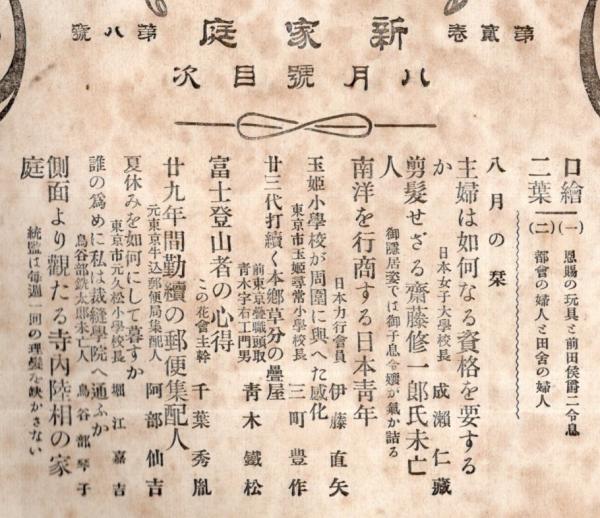 新家庭
第貳卷
第八號
八月號目次
口繪二葉
(一) 恩賜の玩具と前田侯爵二令息
(二) 都會の婦人と田舍の婦人
八月の栞
主婦は如何なる資格を要するか
日本女子大學校長 成瀨仁藏
剪髮せざる齋藤修一郎氏未亡人
御隱居姿では御子息令孃が氣が詰る
南洋を行商する日本靑年
日本力行會員 伊藤直矢
玉姬小學校が周圍に與へた感化
東京市玉姬尋常小學校長 三町豊作
廿三代打續く本鄕草分の疊屋
前東京疊職頭取 靑木宇右工門男 靑木鐵松
富士登山者の心得
この花會主幹 千葉秀胤
廿九年間勤續の郵便集配人
元東京牛込郵便局集配人 阿部仙吉
夏休みを如何にして暮すか
東京市元久松小學校長 堀江嘉吉
誰の爲めに私は裁縫學院へ通ふか
鳥谷部銑太郎未亡人 鳥谷部琴子
側面より觀たる寺內陸相の家庭
統監は每週一回の理髮を缺かさない